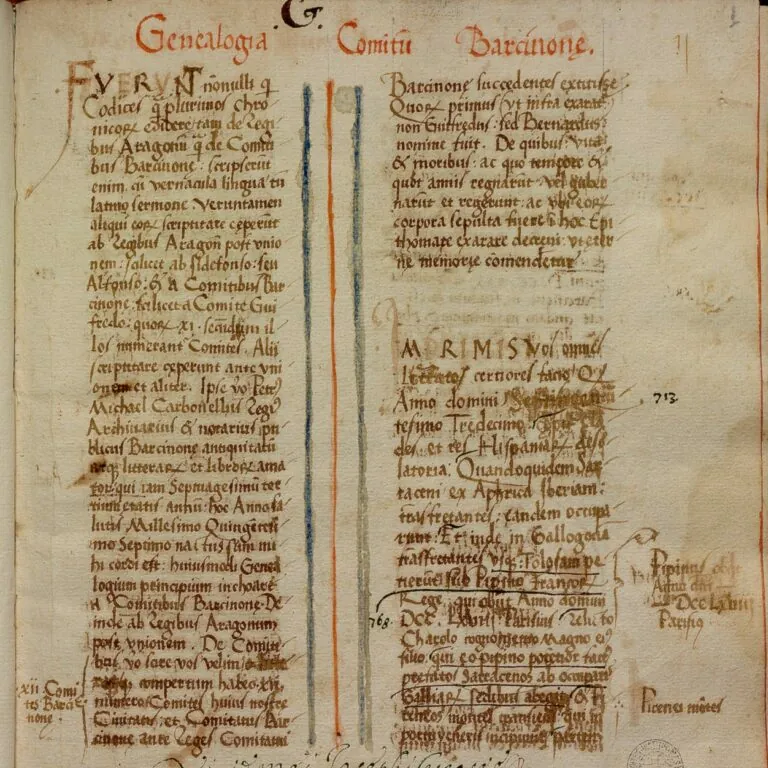 G.
Genealogia Comitū Barcinone.
FVERVNT nōnulli q
Codices q̄ plurimos chro
nicorꝝ edidere tam de Regi
bus Aragonū q̄ de Comiti
bus Barcinone: scripserūt
enim cū vernacula lingua tū
latino sermone Veruntamen
aliqui eorꝝ scriptitare ceperūt
ab Regibus Aragon post vnio
nem: scilicet ab ildefonso: seu
Alfonso: & a Comitibus Bar
cinone. scilicet a Comite Gui
fredo: quorꝝ xi. secundum il
los numerant Comites. Alii
scriptitare ceperunt ante vni
onem et aliter. Ipse vo Petrꝰ
Michael Carbonellius Regiꝰ
Archivarius & notarius pu
blicus Barcinone antiquitatū
atqꝫ litterarꝝ et librorꝝ ama
tor: qui iam Septuagesimū ter
tium etatis annū: hoc Anno sa
lutis Millesimo Quingentesi
mo Septimo natus sum mi
hi cordi est: huiusmodi Genea
logium principium inchoare
a Comitibus Barcinone. De
inde ab Regibus Aragonum
post vnionem. De Comiti
bus vo scire vos velim
compertum habeo. xii.
numero Comites huius nostre
Ciuitatis: et Comitatus Bar
cinone ante Reges Comitatui
xii Comi
tes Barci
none
Barcinone succedentes extitisse
Quorꝝ primus vt infra exarat
non Guifredus: sed Bernardus
nomine fuit. De quibus: vita
& moribus: ac quo tempore &
quot annis regnarūt vel guber
narūt et regerunt: ac vbi eorꝝ
corpora sepulta fuere ī hoc Epi
thomate exarare decreui: vt eter
ne memorie comendetur
IMPRIMIS Vos omnes
certiores facio Qꝫ
Anno domini
tesimo Tredecimo
des et res Hispaniarꝝ deso
latoria. Quandoquidem Sar
raceni ex Aphrica Iberiam
trāsfretantes: eandem occupa
runt: Et inde in Gallogoda
trāsfretantes vsqꝫ Tolosam pe
tierūt sub Pipino Francorꝝ
Rege qui obijt Anno domini
Dcc. Lxviii Parisius relicto
Charolo cognomento Magno eiꝰ
filio. qui eo pipino
Sarracenos ab
Galliarꝝ sedibus abegit & Pi
reneos montes
713.
768.
Pipinus obijt
Anno dnī
Dcc Lxviii
Parisiꝰ
Pirenei mōtes